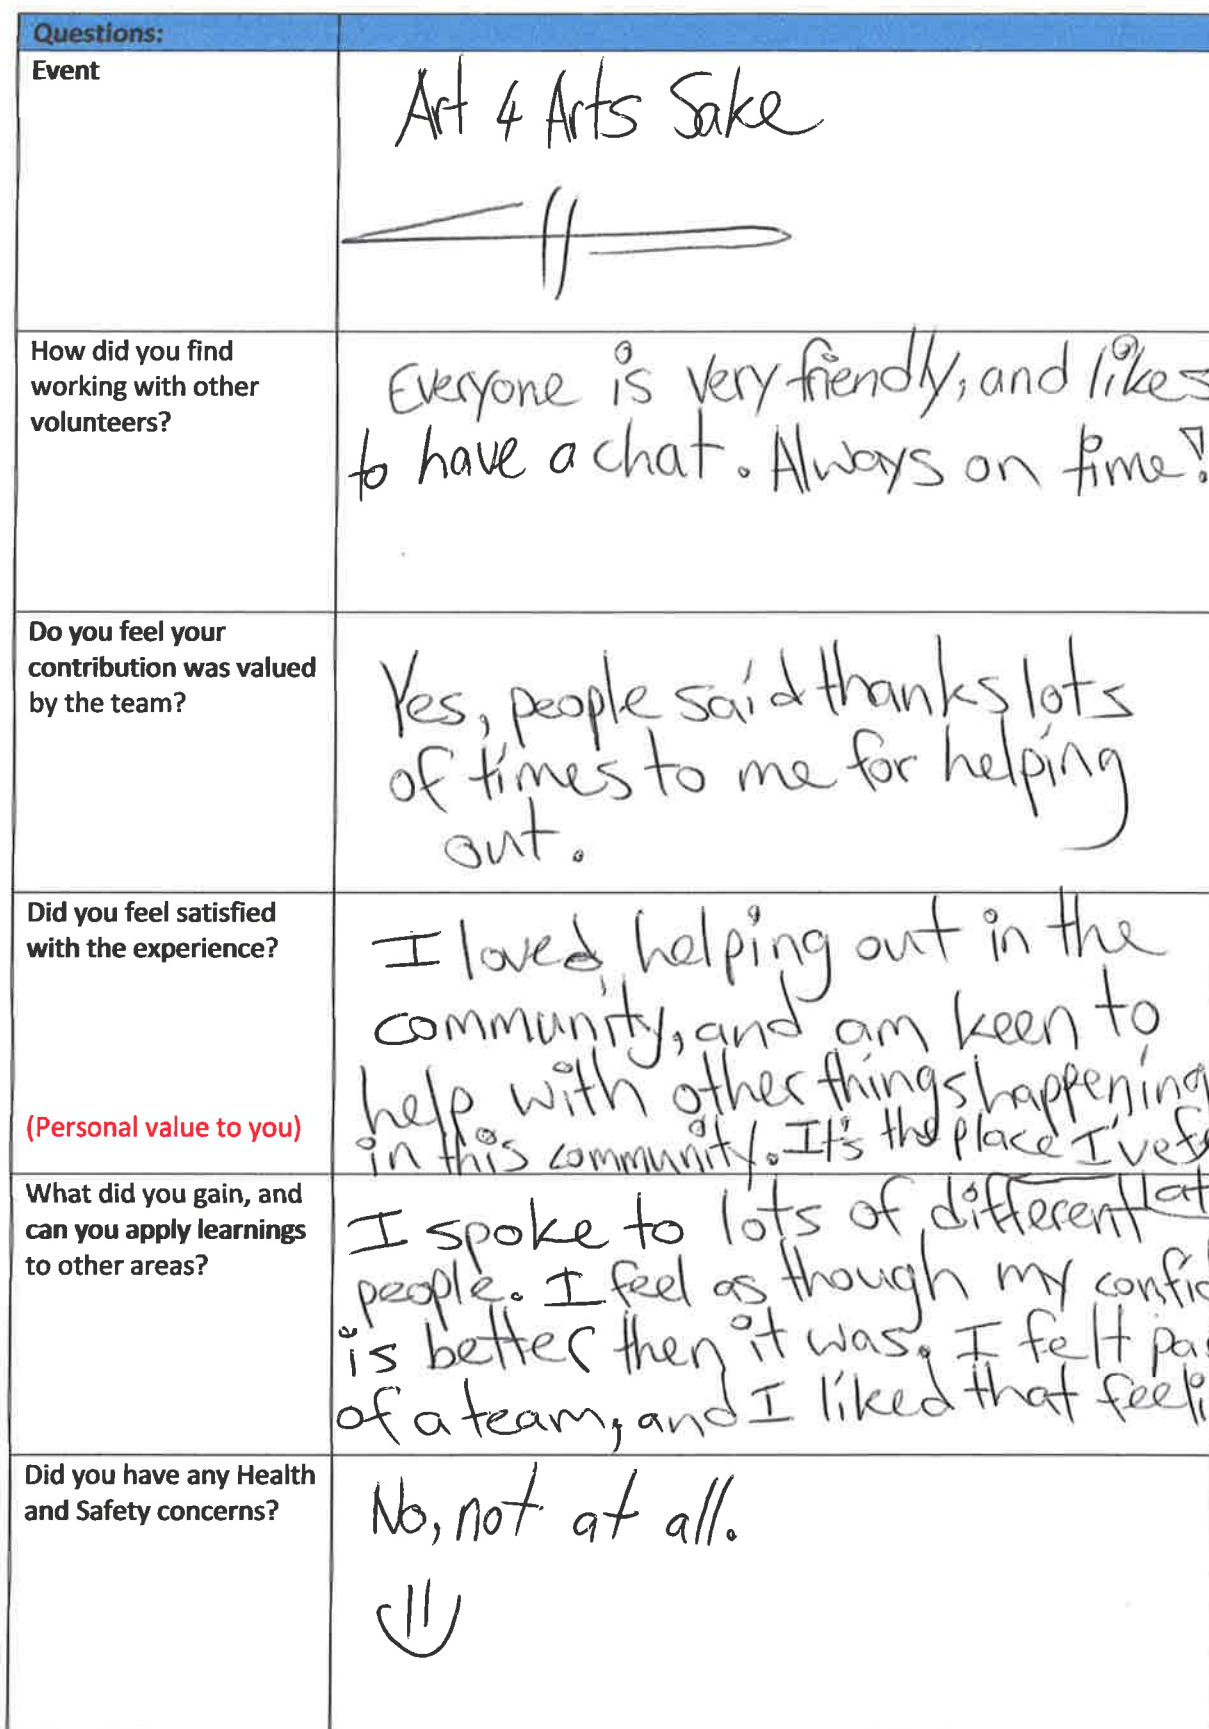 Questions:
Event
Art 4 Arts Sake
How did you find
working with other
volunteers?
Everyone is very friendly, and likes
to have a chat. Always on time!
Do you feel your
contribution was valued
by the team?
Yes, people said thanks lots
of times to me for helping
out.
Did you feel satisfied
with the experience?
(Personal value to you)
I loved helping out in the
community, and am keen to
help with other things happening
in this community. It's the place I've
What did you gain, and
can you apply learnings
to other areas?
I spoke to lots of different
people. I feel as though my confid
is better then it was. I felt pa
of a team, and I liked that feeli
Did you have any Health
and Safety concerns?
No, not at all.